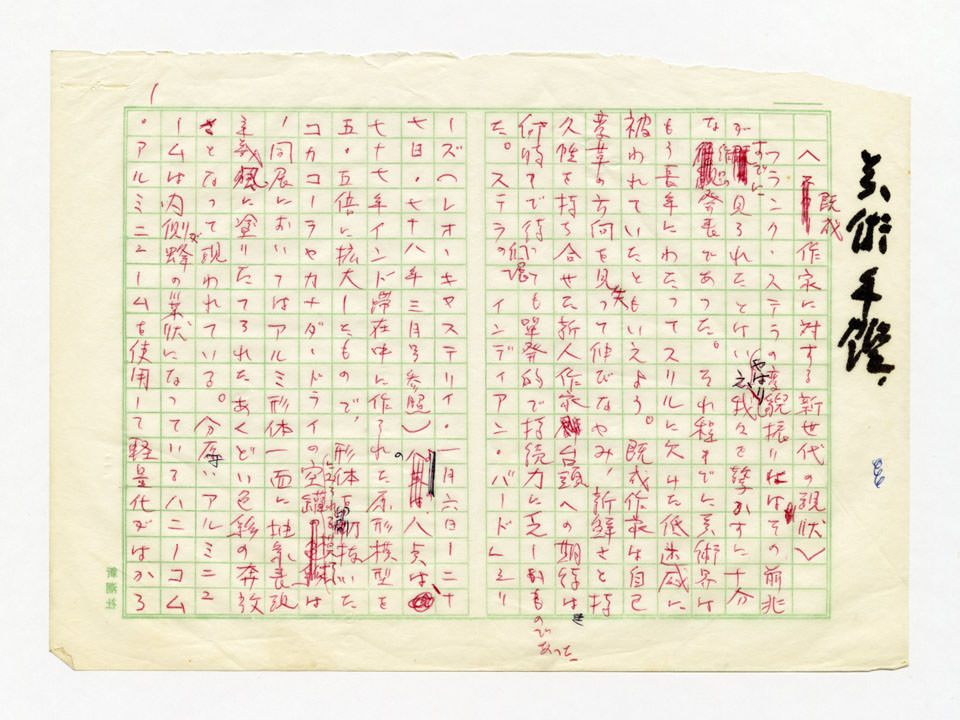 美術手鑑
既成
〈作家に対する新世代の現状〉
フランク・ステラの変貌振りはその前兆
すでに
が個展で見られたとはいえ、やはり我々を驚かすに十分
な発表であった。それ程までに美術界は
もう長年にわたってスリルに欠けた低迷感に
被われていたともいえよう。既成作家は自己
変革の方向を見失って伸びなやみ、新鮮さと持
久性を持ち合せた新人作家台頭への期待は
何時まで待っても単発的で持続力に乏しいものであった
た。ステラの個展「インディアン・バード」シリ
ーズ(レオ・キャステリイ・一月六日ー二十
七日・七十八年三月号参照)の八点は、
七十七年インド滞在中に作られた原形模型を
五・五倍に拡大したもので、形体切抜いた
コカコーラやカナダ・ドライの空罐は
、同展においてはアルミ形体一面に抽象表現
主義風に塗りたてられたあくどい色彩の奔放
さとなって現われている。分厚いアルミニュ
ームは内側が蜂の巣状になっていてハニーコム
・アルミニュームを使用して軽量化がはから